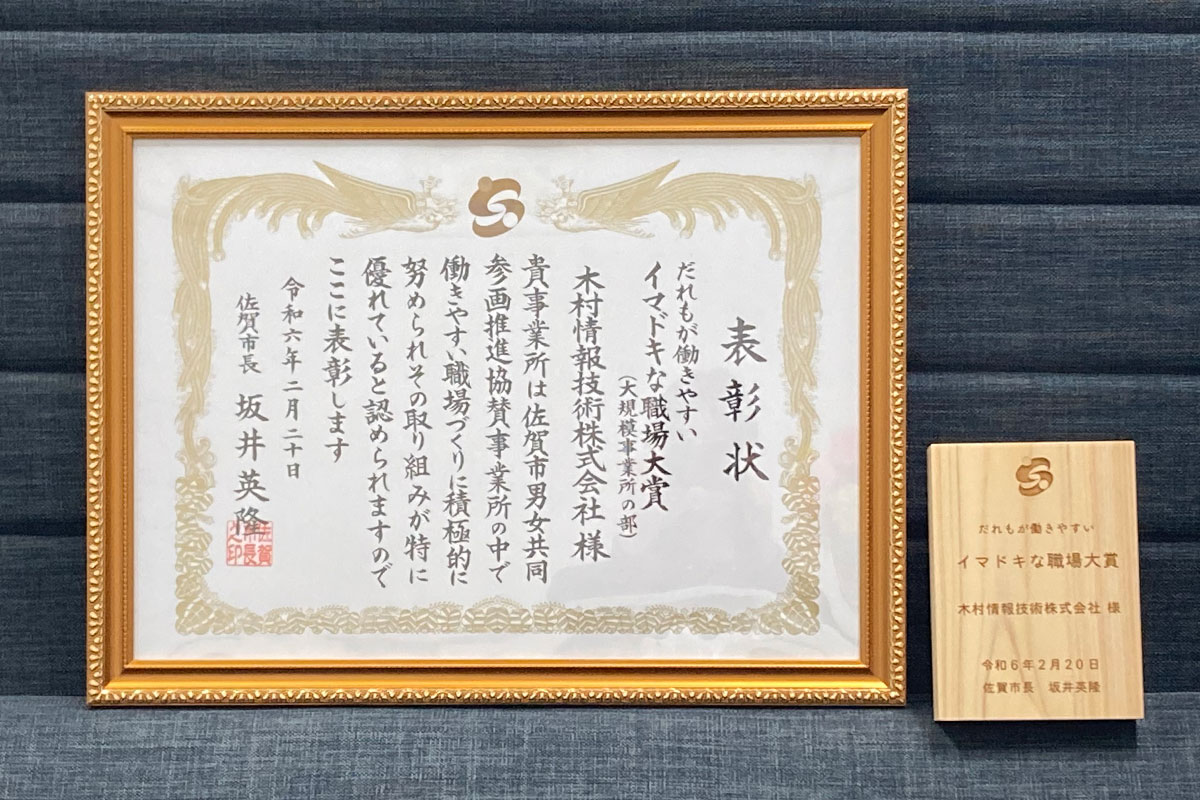 表彰状
だれもが働きやすい
イマドキな職場大賞
（大規模事業所の部）
木村情報技術株式会社 様
貴事業所は佐賀市男女共同
参画推進協賛事業所の中で
働きやすい職場づくりに積極的に
努められその取り組みが特に
優れていると認められますので
ここに表彰します
令和六年二月二十日
佐賀市長 坂井英隆
佐賀市長之印
だれもが働きやすい
イマドキな職場大賞
木村情報技術株式会社 様
令和6年2月20日
佐賀市長 坂井英隆